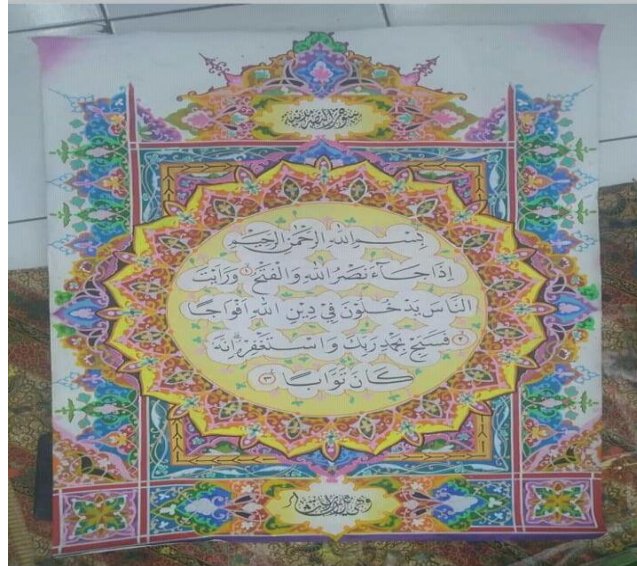 سورة النصر مدنية
بِسْمِ اللهِ الرَّحْمٰنِ الرَّحِيْمِ
اِذَا جَآءَ نَصْرُ اللهِ وَالْفَتْحُ ١ وَرَاَيْتَ
النَّاسَ يَدْخُلُوْنَ فِيْ دِيْنِ اللهِ اَفْوَاجًا
٢ فَسَبِّحْ بِحَمْدِ رَبِّكَ وَاسْتَغْفِرْهُ اِنَّهٗ
كَانَ تَوَّابًا ٣